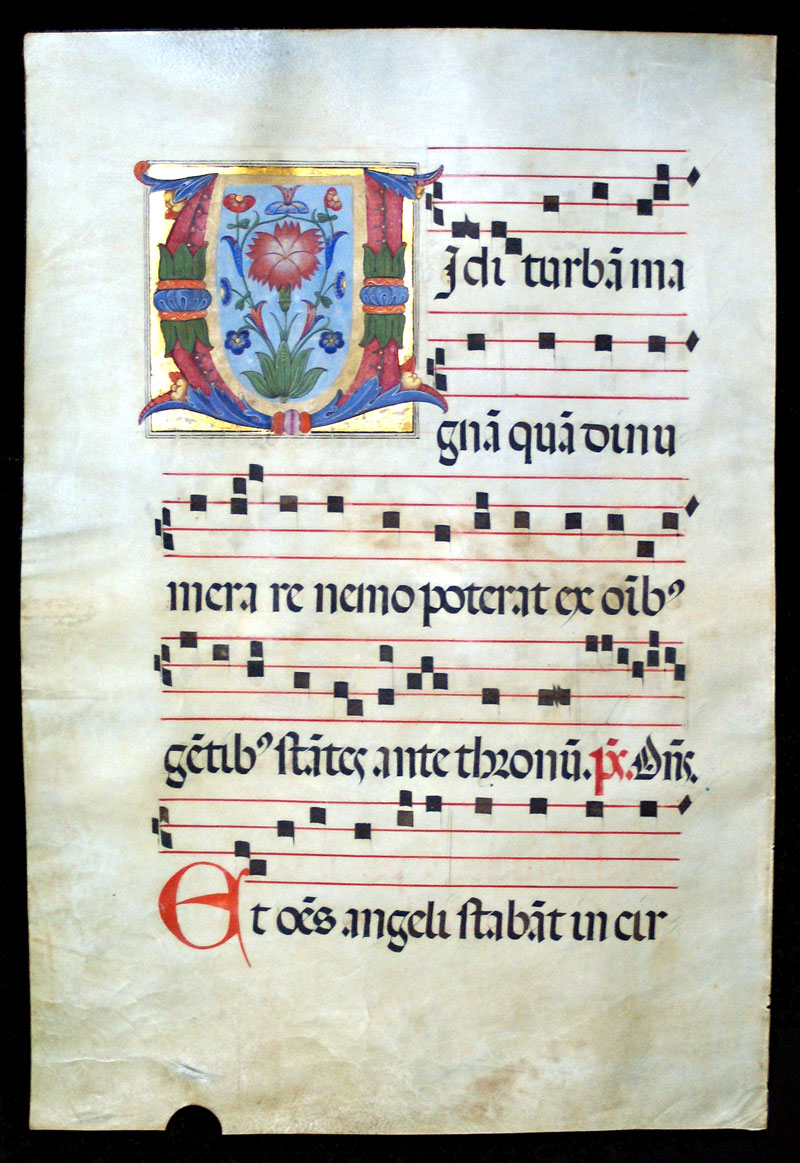 Uidi turbā ma
gnā quā dinu
mera re nemo poterat ex oīb⁹
gētib⁹ stātes ante thronū. p̄s. Dn̄s.
Et oēs angeli stabāt in cir